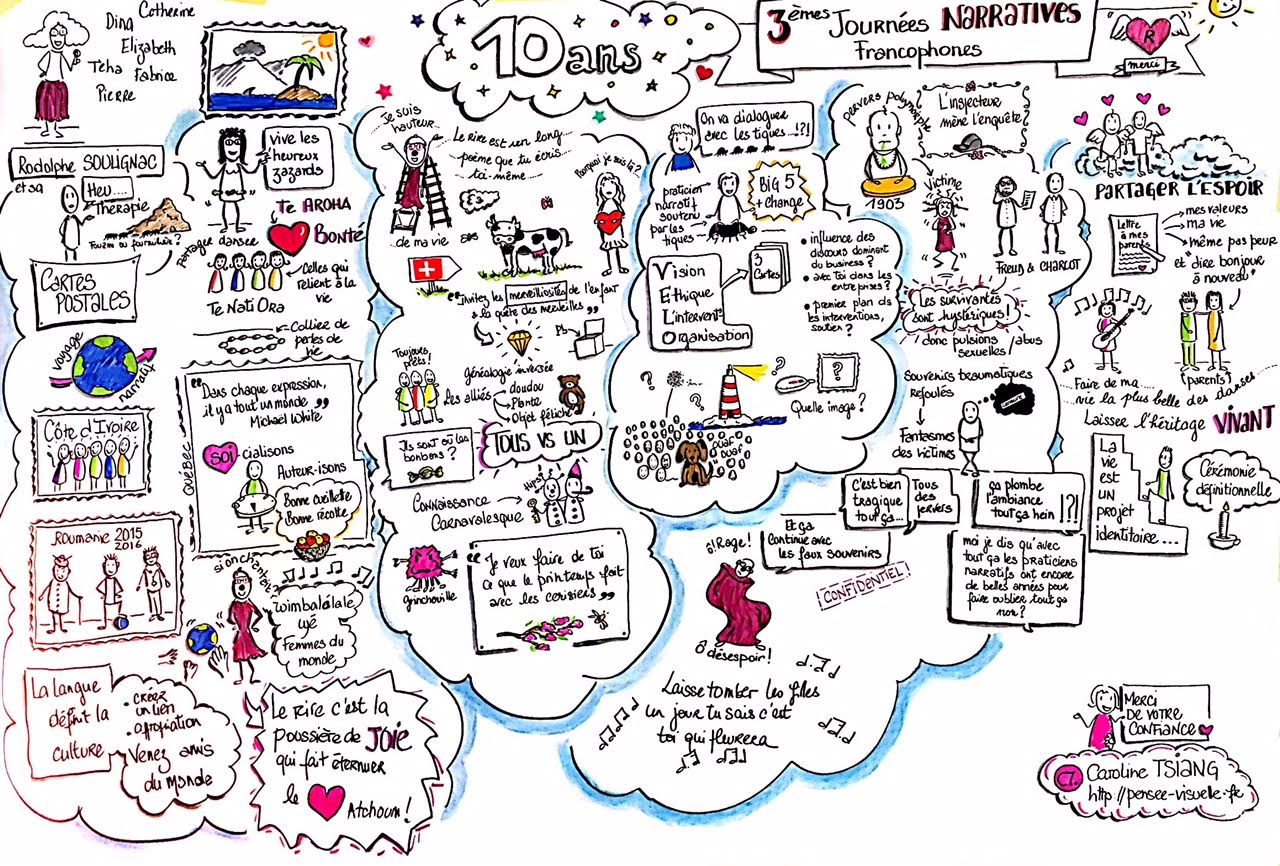 Dina
Catherine
Elizabeth
Tcha
Fabrice
Pierre
10 ans
3èmes Journées NARRATIVES
Francophones
R
merci
Rodolphe SOULIGNAC
et sa
Heu....
Thérapie
Fourmi ou fourmilière?
vive les
heureux
zazards
Te AROHA
Bonté
Partager danser
Celles qui
relient à la
vie
Te Nati Ora
Collier de
perles de
vie
CARTES
POSTALES
voyage
narratif
Côte d'Ivoire
Roumanie 2015
2016
La langue
définit la
culture
• créez
un lien
• appropriation
Venez amis
du Monde
QUÉBEC
"Dans chaque expression,
il y a tout un monde"
Michael White
SOI cialisons
Auteur-isons
Bonne cueillette
Bonne récolte
si on chantait
Wimbalélale
uyé
Femmes du
monde
Le Rire c'est la
poussière de JOIE
qui fait éternuer
le Atchoum!
Je suis
hauteur...
...de ma vie
Le rire est un long
poème que tu écris
toi-même
Pourquoi je suis là?
"Invitez les merveillosités de l'enfant
à la quête des merveilles"
Toujours
prêts!
Les alliés
généalogie inversée
doudou
Plante
Objet fétiche
Pb
Ils sont où les
bonbons?
TOUS VS UN
Connaissance
Carnavalesque
Grinchouille
"Je veux faire de toi
ce que le printemps fait
avec les cerisiers"
On va dialoguer
avec les tiques...!?!
praticien
narratif
soutenu
par les
tiques
BiG 5
+ Change
Vision
Ethique
L'intervent°
Organisation
3
Cartes
• influence des
discours dominant
du business?
• avec Toi dans les
entreprises?
• premier plan ds
les interventions,
soutien?
?
?
?
?
Quelle image?
ouaf
ouaf
PERVERS POLYMORPHE
1903
L'inspecteur
mène l'enquête
Victime
FREUD & CHARCOT
Les survivantes
sont hystériques!
donc pulsions / abus
sexuelles
Souvenirs traumatiques
refoulés
Fantasmes
des victimes
C'est bien
tragique
tout ça...
Tous
des
pervers
ça plombe
l'ambiance
tout ça hein
!?!
Et ça
continue avec
les faux souvenirs
CONFIDENTIEL!
moi je dis qu'avec
tout ça les praticiens
narratifs ont encore
de belles années pour
faire oublier tout ça
non?
ô! Rage!
Ô désespoir!
Laisse tomber les filles
un jour tu sais c'est
toi qui pleurera
PARTAGER L'ESPOIR
Lettre
à mes
parents
mes valeurs
ma vie
même pas peur
et "dire bonjour
à nouveau"
(parents)
Faire de ma
vie la plus belle des danses
Laisser l'héritage VIVANT
La
vie
est
un
projet
identitaire...
Cérémonie
définitionnelle
MERCI
DE VOTRE
CONFIANCE
CT.
Caroline TSIANG
http://pensee-visuelle.fr